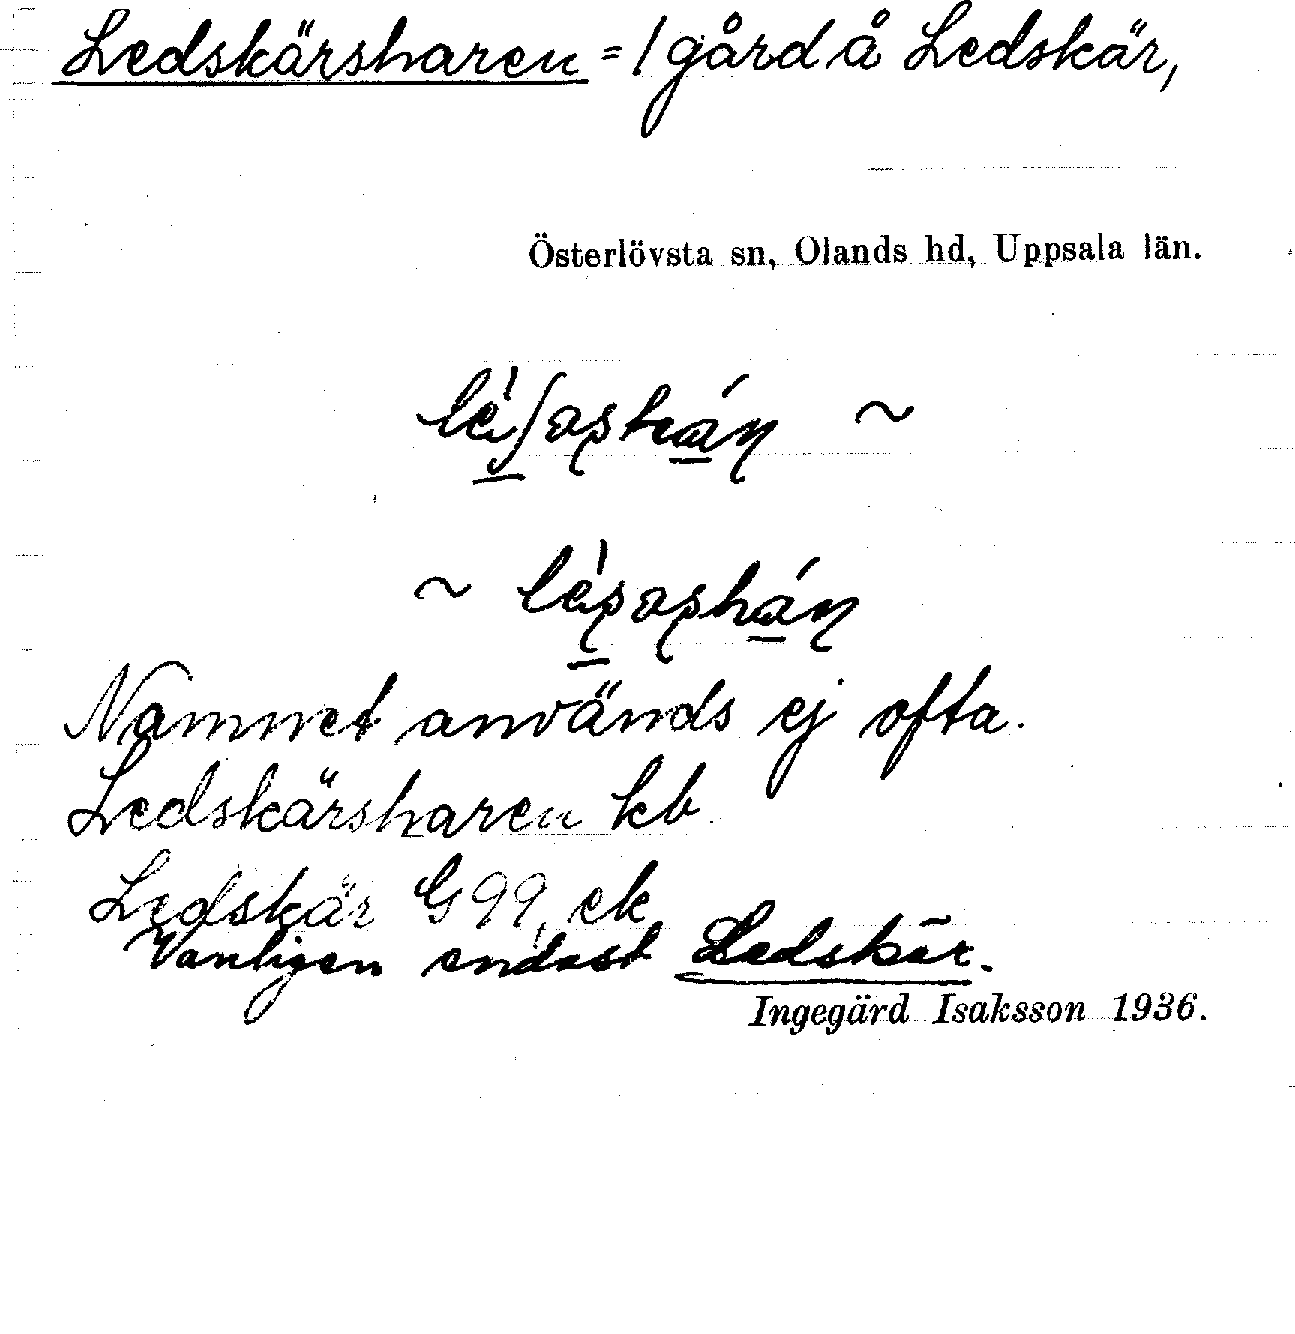 Ledskärsharen = 1 gård å Ledskär,
Österlövsta sn, Olands hd, Uppsala län.
~
~
Namnet används ej ofta.
Ledskärsharen kb
Ledskär G 99, ek
Vanligen endast Ledskär.
Ingegärd Isaksson 1936.